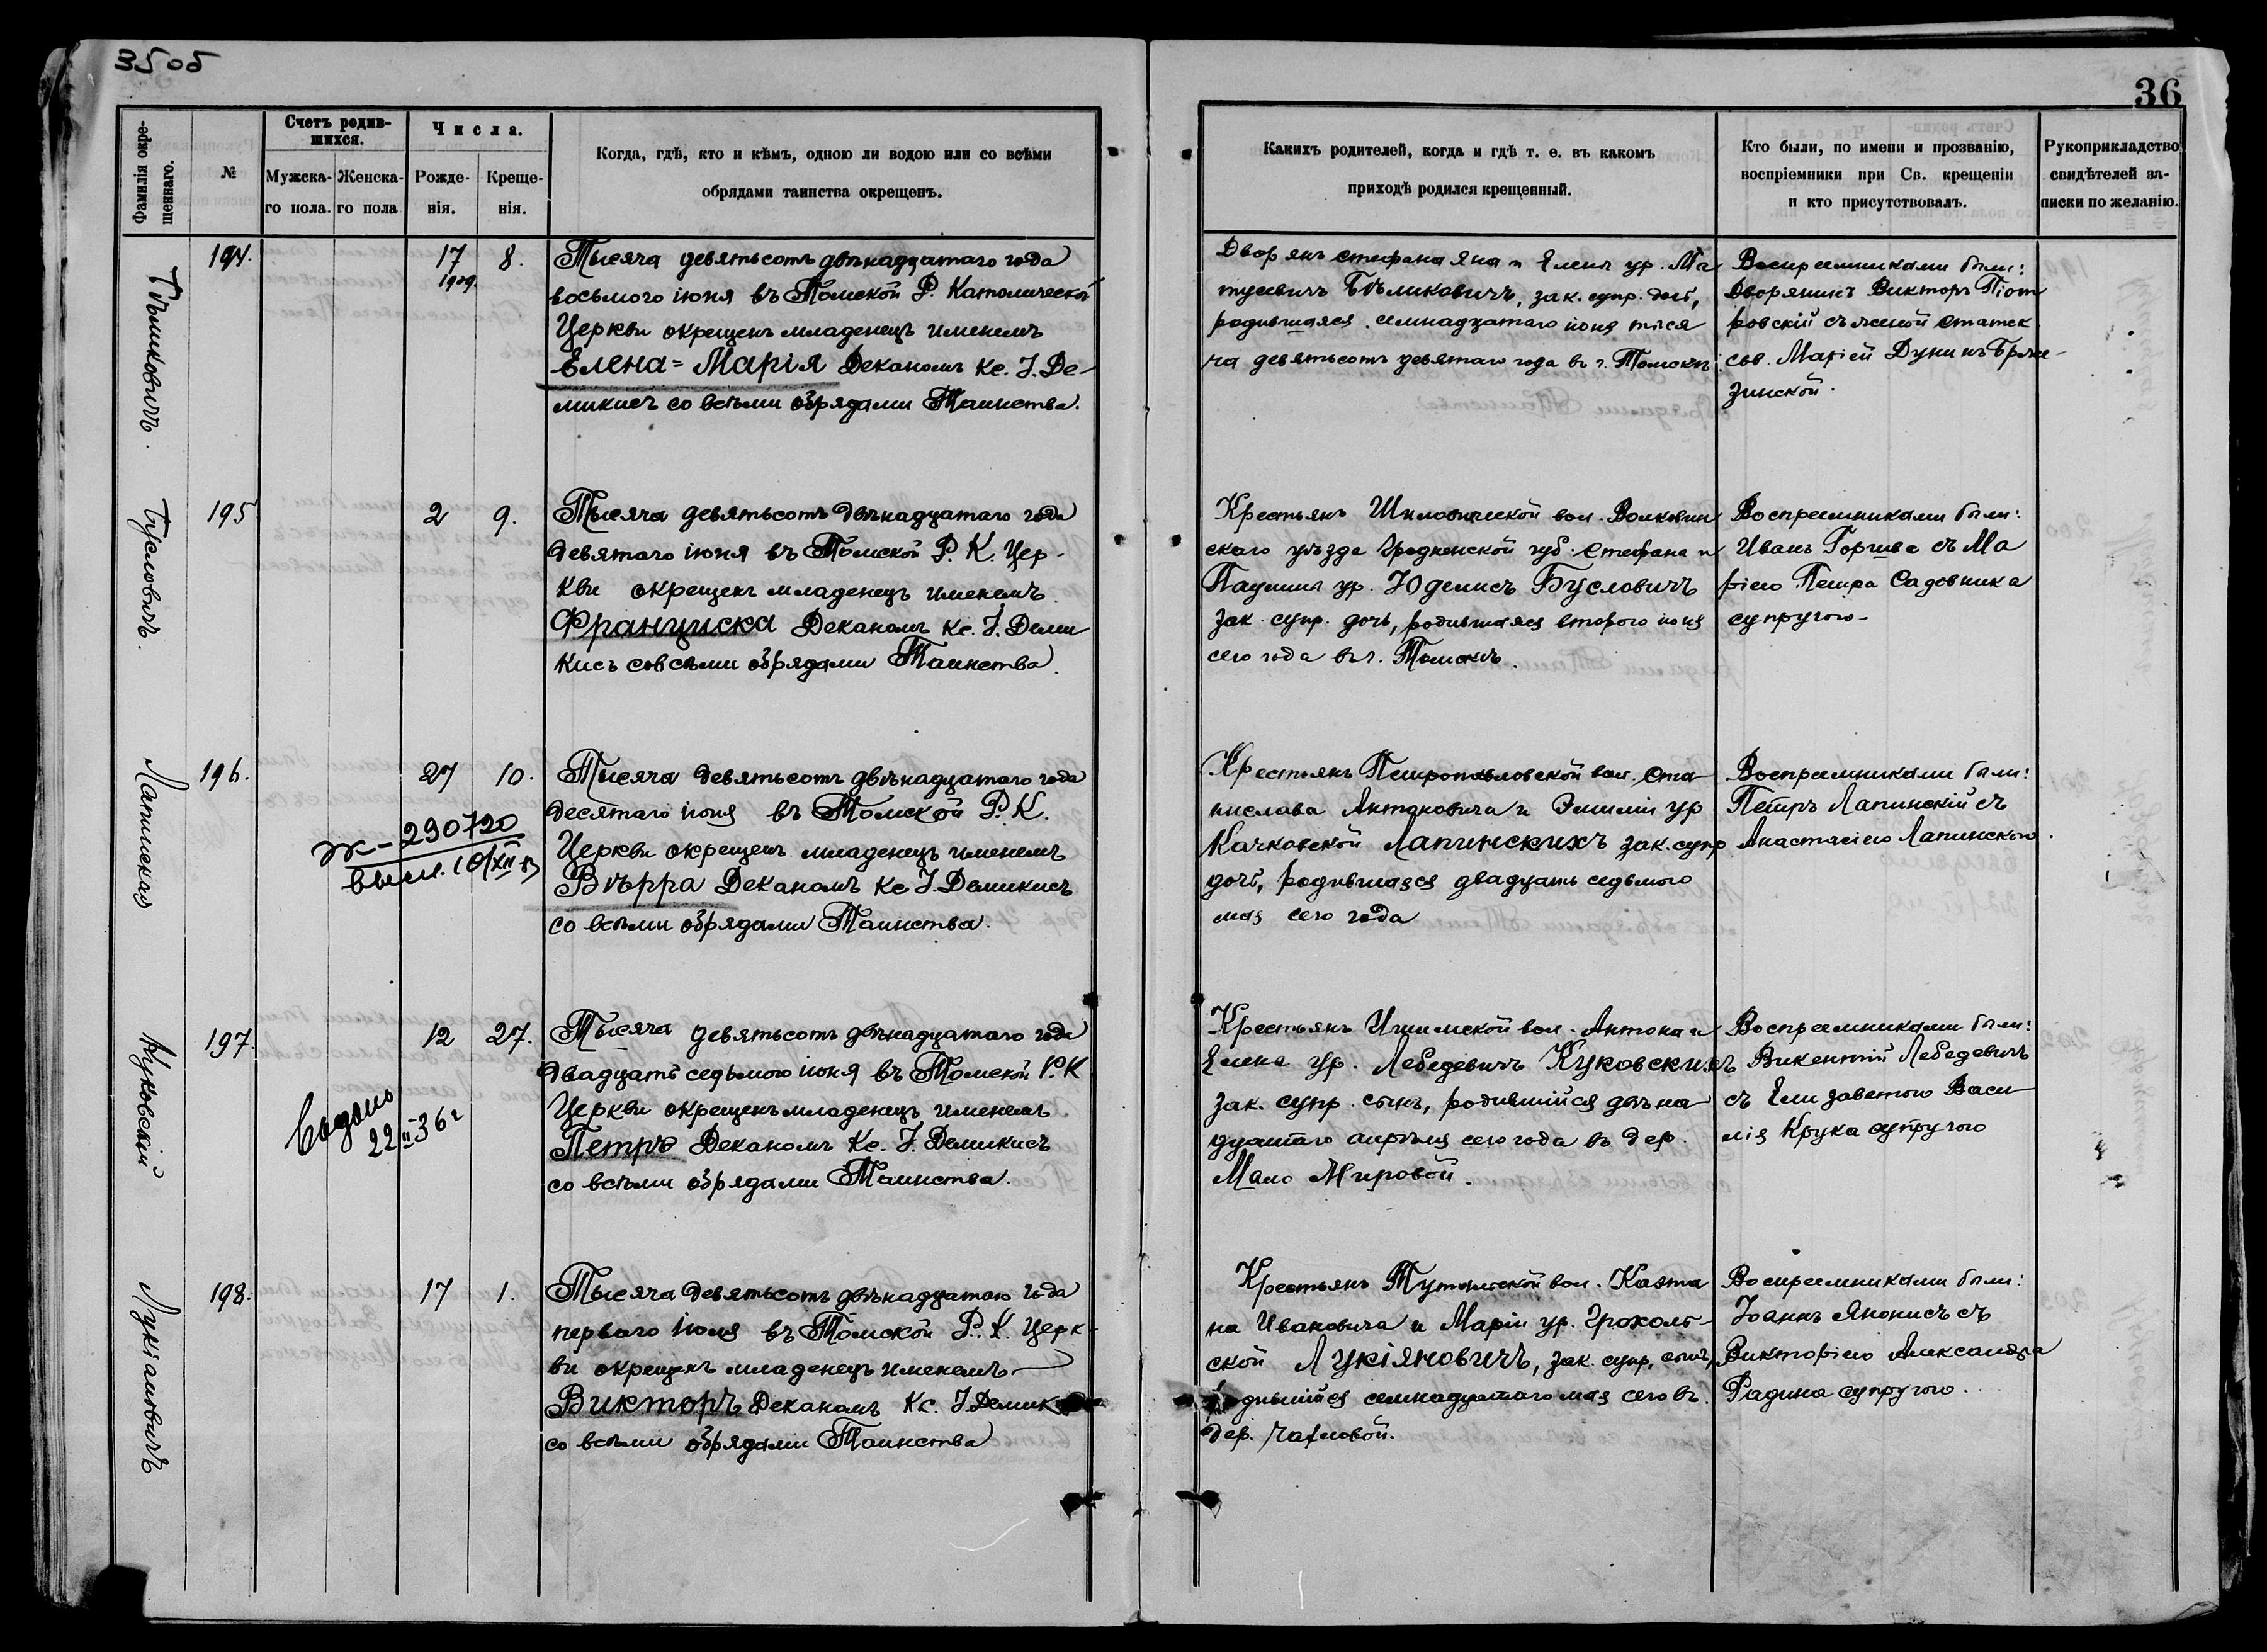 35об
36
Фамилія окре-
щеннаго.
№
Счетъ родив-
шихся.
Мужска-
го пола.
Женска-
го пола
Числа.
Рожде-
нія.
Креще-
нія.
Когда, гдѣ, кто и кѣмъ, одною ли водою или со всѣми
обрядами таинства окрещенъ.
Какихъ родителей, когда и гдѣ т. е. въ какомъ
приходѣ родился крещенный.
Кто были, по имени и прозванію,
воспріемники при Св. крещеніи
и кто присутствовалъ.
Рукоприкладство
свидѣтелей за-
писки по желанію.
Бѣликовичъ.
194.
17
1909.
8.
Тысяча девятьсотъ двѣнадцатаго года
восьмого іюня въ Томской Р. Католической
Церкви окрещенъ младенецъ именемъ
Елена=Марія Деканомъ Кс. І. Де-
микисъ со всѣми обрядами Таинства.
Дворянъ Стефана Яна и Елены ур. Ма
тусевичъ Бѣликовичъ, зак. супр. дочь,
родившаяся семнадцатаго іюня тыся
ча девятьсотъ девятаго года въ г. Томскѣ
Воспреемниками были:
Дворянинъ Викторъ Піот
ровскій съ женой статск
сов. Маріей Дунинъ Брже-
зинской.
Бусловичъ.
195
2
9.
Тысяча девятьсотъ двѣнадцатаго года
девятаго іюня въ Томской Р. К. Цер-
кви окрещенъ младенецъ именемъ
Франциска Деканомъ Кс. І. Деми
кисъ совсѣми обрядами Таинства.
Крестьянъ вол. Волковы
скаго уѣзда Гродненской губ. Стефана и
Паулины ур. Юделисъ Бусловичъ
зак. супр. дочь, родившаяся второго іюня
сего года въ г. Томскѣ.
Воспреемниками были:
Иванъ съ Ма
ріею Петра Садовника
супругою-
Лапинская
196.
27
10.
ж-290720
высл.
Тысяча девятьсотъ двѣнадцатаго года
десятаго іюня въ Томской Р. К.
Церкви окрещенъ младенецъ именемъ
Вѣрра Деканомъ Кс І. Демикисъ
со всѣми обрядами Таинства.
Крестьянъ Петропавловской вол. Ста-
нислава Антоновича и Эмиліи ур
Качковской Лапинскихъ зак. супр
дочь, родившаяся двадцать седьмого
мая сего года
Воспреемниками были:
Петръ Лапинскій съ
Анастасіею Лапинскою.
Куковскій
197.
12
27.
22 II-36 г
Тысяча девятьсотъ двѣнадцатаго года
двадцать седьмого іюня въ Томской Р. К
Церкви окрещенъ младенецъ именемъ
Петръ Деканомъ Кс. І. Демикисъ
со всѣми обрядами Таинства.
Крестьянъ Ишимской вол. Антона и
Елена ур. Лебедевичъ Куковскихъ
зак. супр. сынъ, родившійся двѣна
дцатаго апрѣля сего года въ дер.
Мало Жировой.
Воспреемниками были:
Викентій Лебедевичъ
съ Елизаветою Васи
лія Крука супругою
Лукіановичъ
198.
17
1.
Тысяча девятьсотъ двѣнадцатаго года
перваго іюля въ Томской Р. К. Церк-
ви окрещенъ младенецъ именемъ
Викторъ Деканомъ Кс. І. Демик
со всѣми обрядами Таинства
Крестьянъ Тутальской вол. Каэта
на Ивановича и Маріи ур. Грохоль-
ской Лукіяновичъ, зак. супр. сынъ,
родившійся семнадцатаго мая сего въ
дер.
Воспреемниками были:
Іоаннъ Янонисъ съ
Викторіею Александра
Радина супругою.